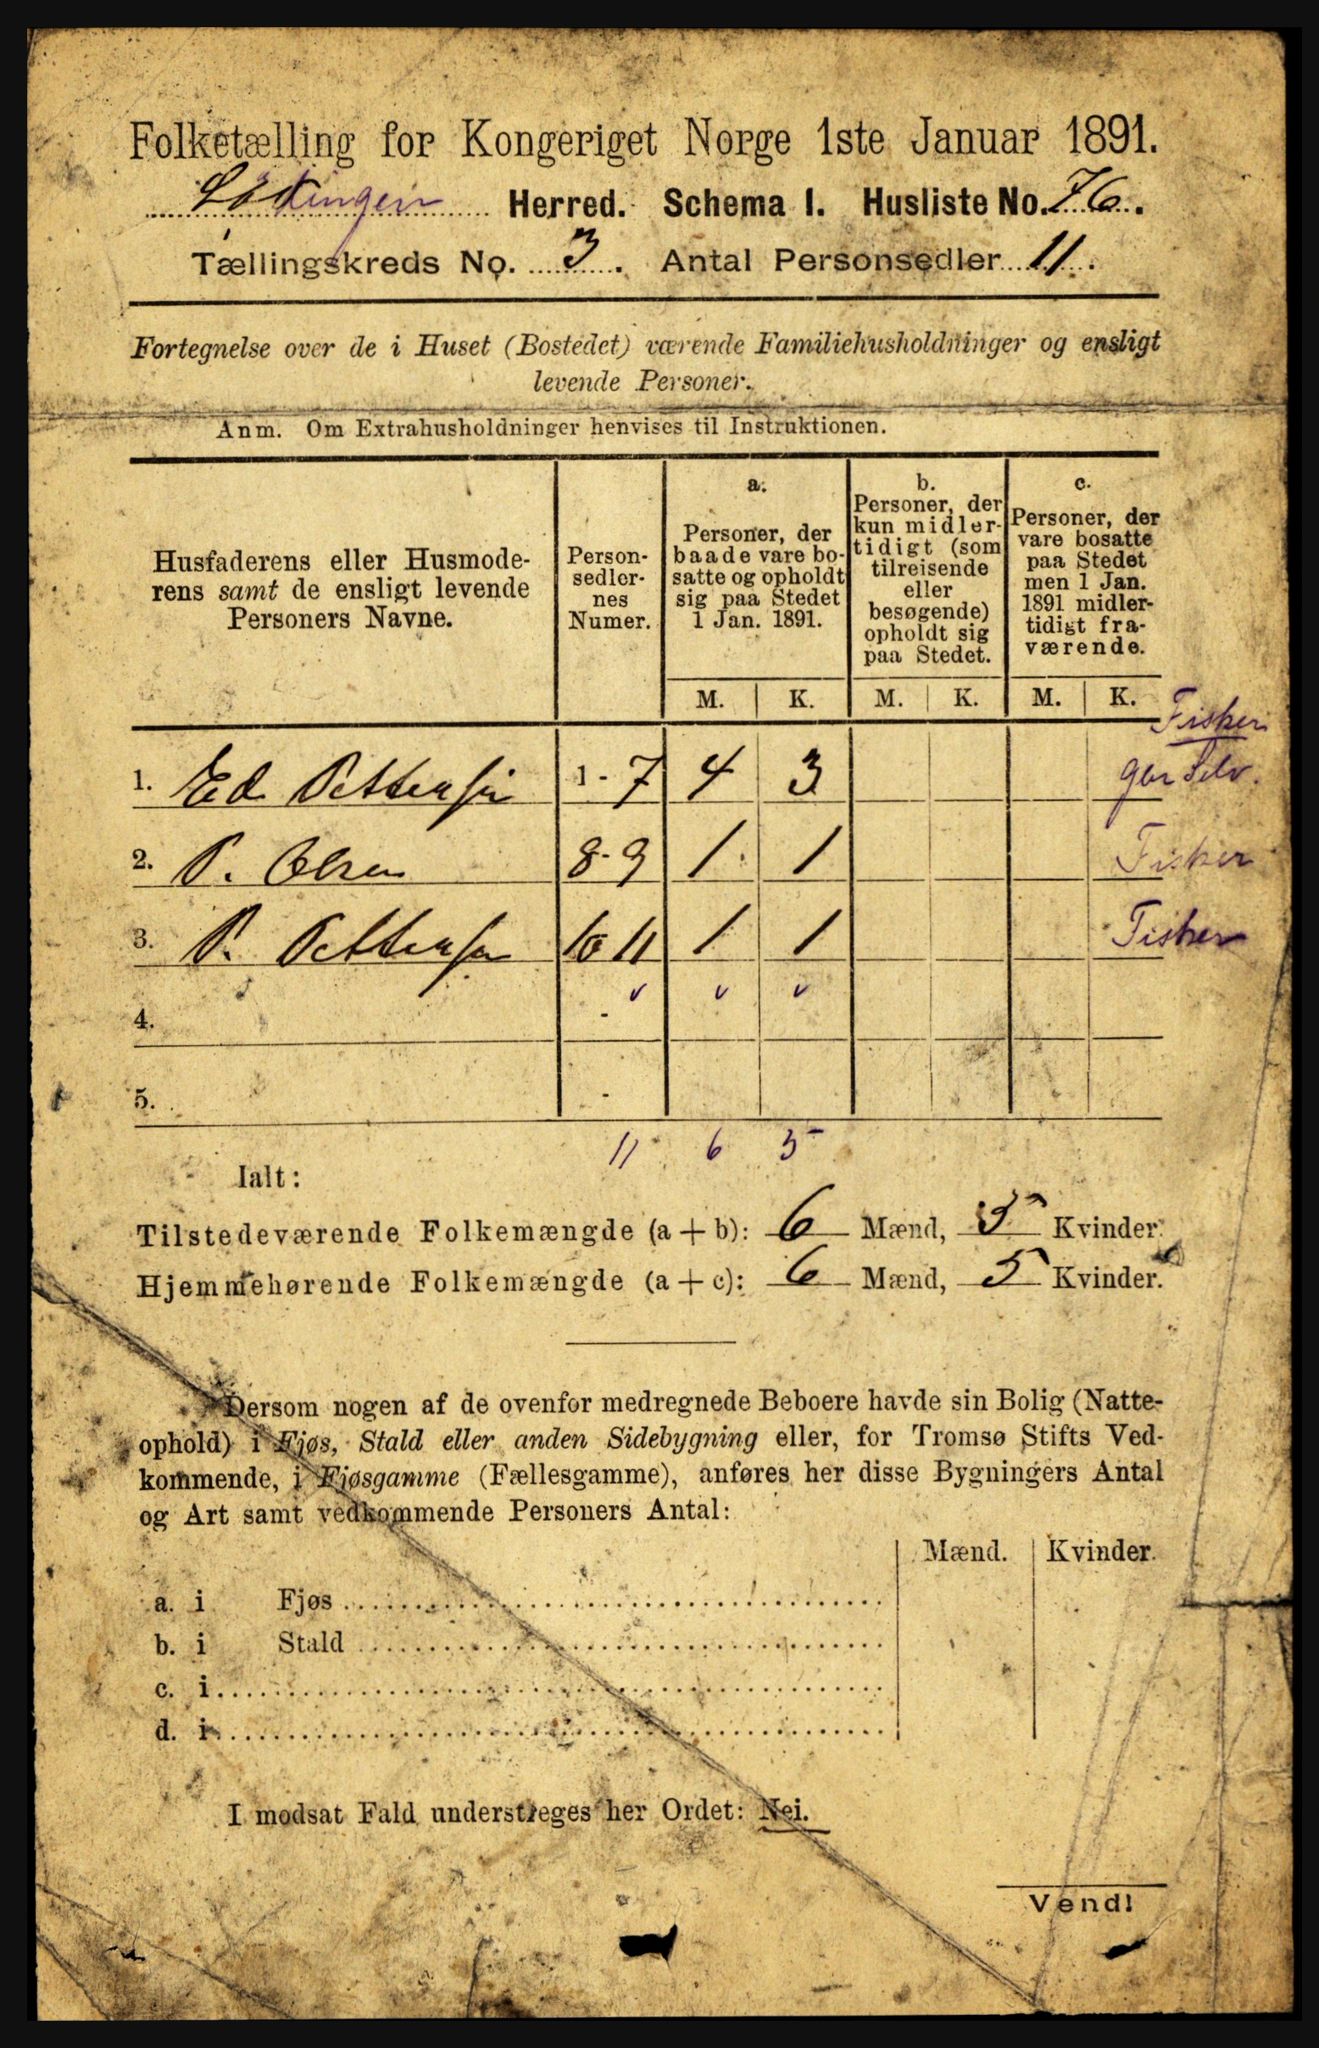 Folketælling for Kongeriget Norge 1ste Januar 1891.
Lødingen Herred. Schema I. Husliste No. 76.
Tællingskreds No. 3. Antal Personsedler 11.
Fortegnelse over de i Huset (Bostedet) værende Familiehusholdninger og ensligt
levende Personer.
Anm. Om Extrahusholdninger henvises til Instruktionen.
Husfaderens eller Husmode-
rens samt de ensligt levende
Personers Navne.
Person-
sedler-
nes
Numer.
a.
Personer, der
baade vare bo-
satte og opholdt
sig paa Stedet
1 Jan. 1891.
b.
Personer, der
kun midler-
tidigt (som
tilreisende
eller
besøgende)
opholdt sig
paa Stedet.
c.
Personer, der
vare bosatte
paa Stedet
men 1 Jan.
1891 midler-
tidigt fra-
værende.
M. K. M. K. M. K.
Fisker
1. Ed. Pettersen 1-7 4 3 gbr Selv.
2. P. Olsen 8-9 1 1 Fisker
3. P. Pettersen 10 11 1 1 Fisker
4. -
5. -
11 6 5
Ialt:
Tilstedeværende Folkemængde (a + b): 6 Mænd, 5 Kvinder.
Hjemmehørende Folkemængde (a + c): 6 Mænd, 5 Kvinder.
Dersom nogen af de ovenfor medregnede Beboere havde sin Bolig (Natte-
ophold) i Fjøs, Stald eller anden Sidebygning eller, for Tromsø Stifts Ved-
kommende, i Fjøsgamme (Fællesgamme), anføres her disse Bygningers Antal
og Art samt vedkommende Personers Antal:
Mænd. Kvinder.
a. i Fjøs
b. i Stald
c. i
d. i
I modsat Fald understreges her Ordet: Nei.
Vend!